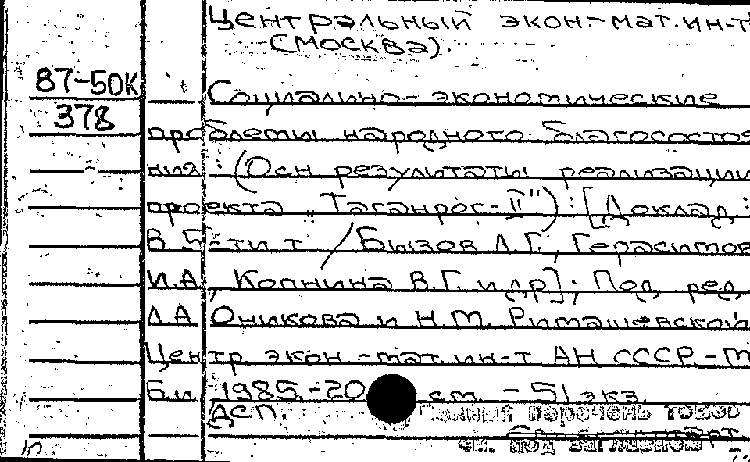 Центральный экон-мат.ин-т
(Москва).
87-50К
378
Социально-экономические
проблемы народного благосостоя
ния: (Осн результаты реализации
проекта „Таганрог-II"): [Доклад:
В 5-ти т / Бызов Л.Г., Герасимов
И.А, Копнина В.Г. и др]; Под ред
Л.А Оникова и Н.М. Римашевской
Центр экон-мат.ин-т АН СССР.-М
Б.и. 1985.-20 см. -51 экз.
ДСП.
перечень
см. под заглавием